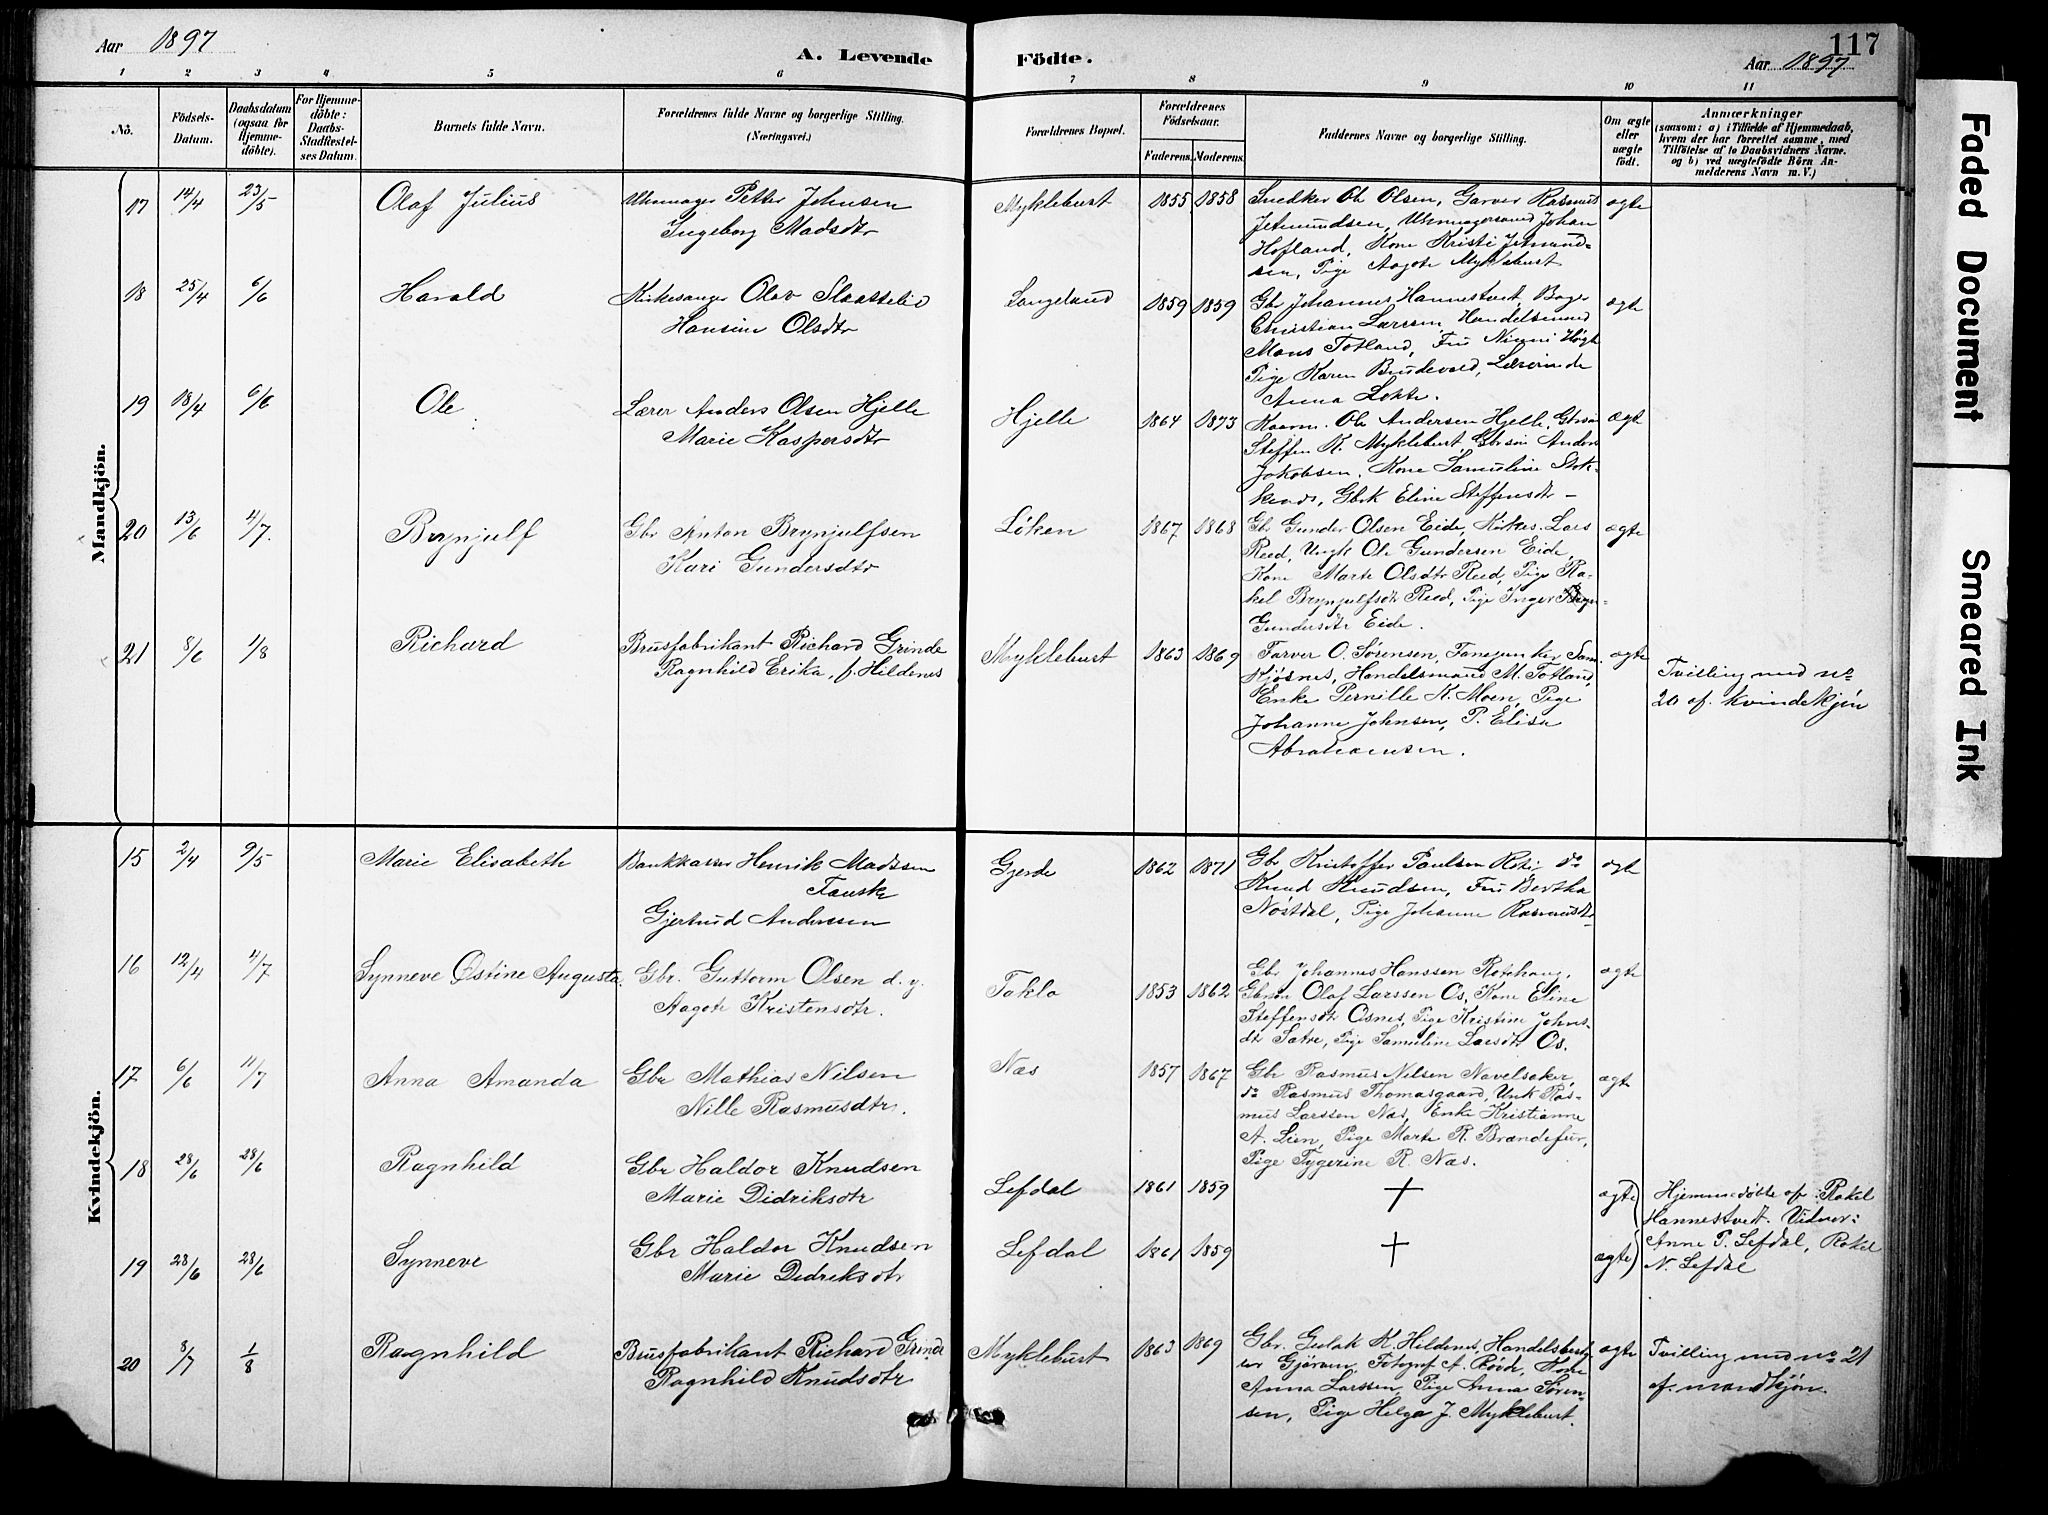 Aar 1897
A. Levende
Födte.
Aar 1897
117
1 2 3 4 5 6 7 8 9 10 11
No.
Födsels-
Datum.
Daabsdatum
(ogsaa for
Hjemme-
döbte).
For Hjemme-
döbte:
Daabs-
Stadfæstel-
ses Datum.
Barnets fulde Navn.
Forældrenes fulde Navne og borgerlige Stilling.
(Næringsvei.)
Forældrenes Bopæl.
Forældrenes
Födselsaar.
Faderens. Moderens.
Faddernes Navne og borgerlige Stilling.
Om ægte
eller
uægte
födt.
Anmærkninger
(saasom: a) i Tilfælde af Hjemmedaab,
hvem der har forrettet samme, med
Tilföielse af to Daabsvidners Navne.
og b) ved uægtefödte Börn An-
melderens Navn m. V.)
Mandkjön.
17 14/4 23/5 Olaf Julius
Uhrmager Petter Johnsen
Ingeborg Madsdtr
Myklebust 1855 1858
Snedker Ole Olsen, Garver Rasmus
Jetmundsen, Johan
Hofland, Kone Kristi Jetmund-
sen, Pige Aagote Myklebust
ægte
18 25/4 6/6 Harald
Kirkesanger Olav Slaattelid
Hansine Olsdtr
Langeland 1859 1859
Gbr Johannes Hannestveit, Bager
Christian Larssen, Handelsmand
Mons Totland, Fru
Pige Karen Lærerinde
Anna Løkke.
ægte
19 18/4 6/6 Ole
Lærer Anders Olsen Hjelle
Marie Kaspersdtr
Hjelle 1864 1873
Ole Andersen Hjelle, Gbrsøn
Steffen R. Myklebust Gbrsøn Anders
Jakobsen, Kone Samuline Stok-
Gbrk Eline Steffensdtr -
ægt
20 13/6 11/7. Brynjulf
Gbr Anton Brynjulfsen
Kari Gundersdtr
Löken 1867 1868
Gbr Gunder Olsen Eide, Kirkes. Lars
Reed, Ungk Ole Gundersen Eide,
Kone Marte Olsdtr Reed, Pige Ra-
kel Brynjulfsdtr Reed, Pige Inger
Gundersdtr Eide.
ægte
21 8/6 1/8 Richard
Brusfabrikant Richard Grinde
Ragnhild Erika, f. Hildenes
Myklebust 1863 1869
Farver O. Sørensen, Sam.
Kjøsnes, Handelsmand M. Totland,
Enke Pernille K. Moen, Pige
Johanne Johnsen, P. Elisa
Abrahamsen.
ægte
Tvilling med no
20 af kvindekjön
Kvindekjön.
15 2/4 9/5 Marie Elisabeth
Bankkasser Henrik Madssen
Tauske
Gjertrud Anderssen
Gjerde 1862 1871
Gbr Kristoffer Paulsen do
Knud Knudsen, Fru Bertha
Nøstdal, Pige Johanne Rasmusdtr
ægt
16 12/4 11/7 Synneve Østine Augusta.
Gbr. Guttorm Olsen d. y.
Aagote Kristensdtr.
Taklo 1853 1862
Gbr Johannes Hanssen Rotehaug,
Gbrsøn Olaf Larssen Os, Kone Eline
Steffensdtr Osnes, Pige Kristine Johns-
dtr Sætre, Pige Samuline Larsdtr Os.
ægte
17 6/6 11/7 Anna Amanda
Gbr Mathias Nilsen
Nille Rasmusdtr.
Næs 1857 1867
Gbr Rasmus Nilsen Navelsaker,
do Rasmus Thomasgaard, Unk Ras-
mus Larssen Næs, Enke Kristianne
A. Lien, Pige Marte R. Brandefur,
Pige Tygerine R. Næs.
ægte
18 28/6 28/6 Ragnhild
Gbr Haldor Knudsen
Marie Didriksdtr
Lefdal 1861 1859 +
ægte
Hjemmedøbte af Rakel
Hannestveit. Vidner:
Anne P. Lefdal, Rakel
N. Lefdal
19 28/6 28/6 Synneve
Gbr Haldor Knudsen
Marie Didriksdtr
Lefdal 1861 1859 +
ægte
20 8/7 1/8 Ragnhild
Brusfabrikant Richard Grinde
Ragnhild Knudsdtr
Myklebust 1863 1869
Gbr. Gustak K. Hildenes, Handelsbesty-
rer Gjørven, Fotograf A. Røed, Kone
Anna Larssen, Pige Anna Søren-
sen, Pige Helga J. Myklebust.
ægte
Tvilling med no 21
af mandkjön.
Faded Document
Smeared Ink